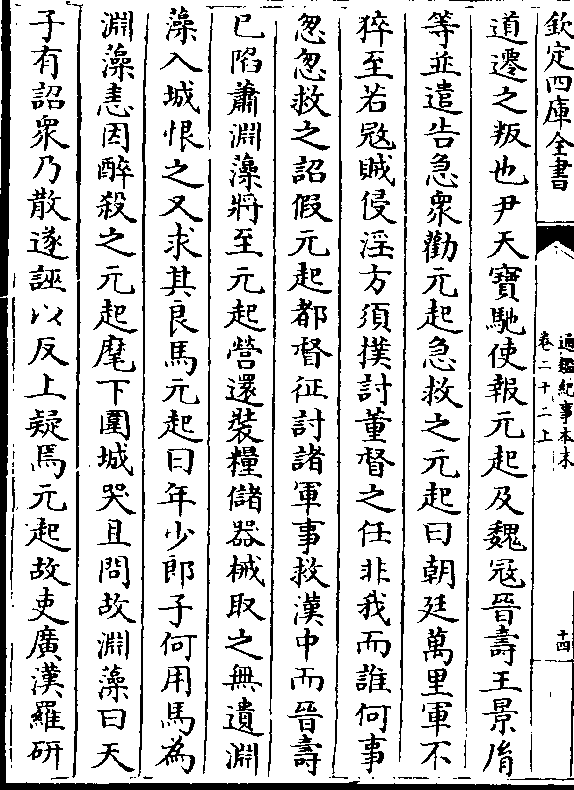 欽定四庫全書
通鑑紀事本末
卷二十二上
十四
道遷之叛也尹天寶馳使報元起及魏寇晉壽王景𦙍
等並遣告急衆勸元起急救之元起曰朝廷萬里軍不
猝至若㓂賊侵淫方須撲討董督之任非我而誰何事
怱怱救之詔假元起都督征討諸軍事救漢中而晉壽
已陷蕭淵藻將至元起營還裝糧儲器械取之無遺淵
藻入城恨之又求其良馬元起曰年少郎子何用馬為
淵藻恚因醉殺之元起麾下圍城哭且問故淵藻曰天
子有詔衆乃散遂誣以反上疑焉元起故吏廣漢羅研